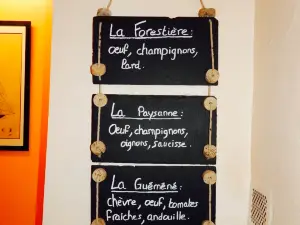 La Forestière :
oeuf, champignons,
lard.
La Paysanne :
Oeuf, champignons,
oignons, saucisse.
La Guéméné :
chèvre, oeuf, tomates
fraîches, andouille.